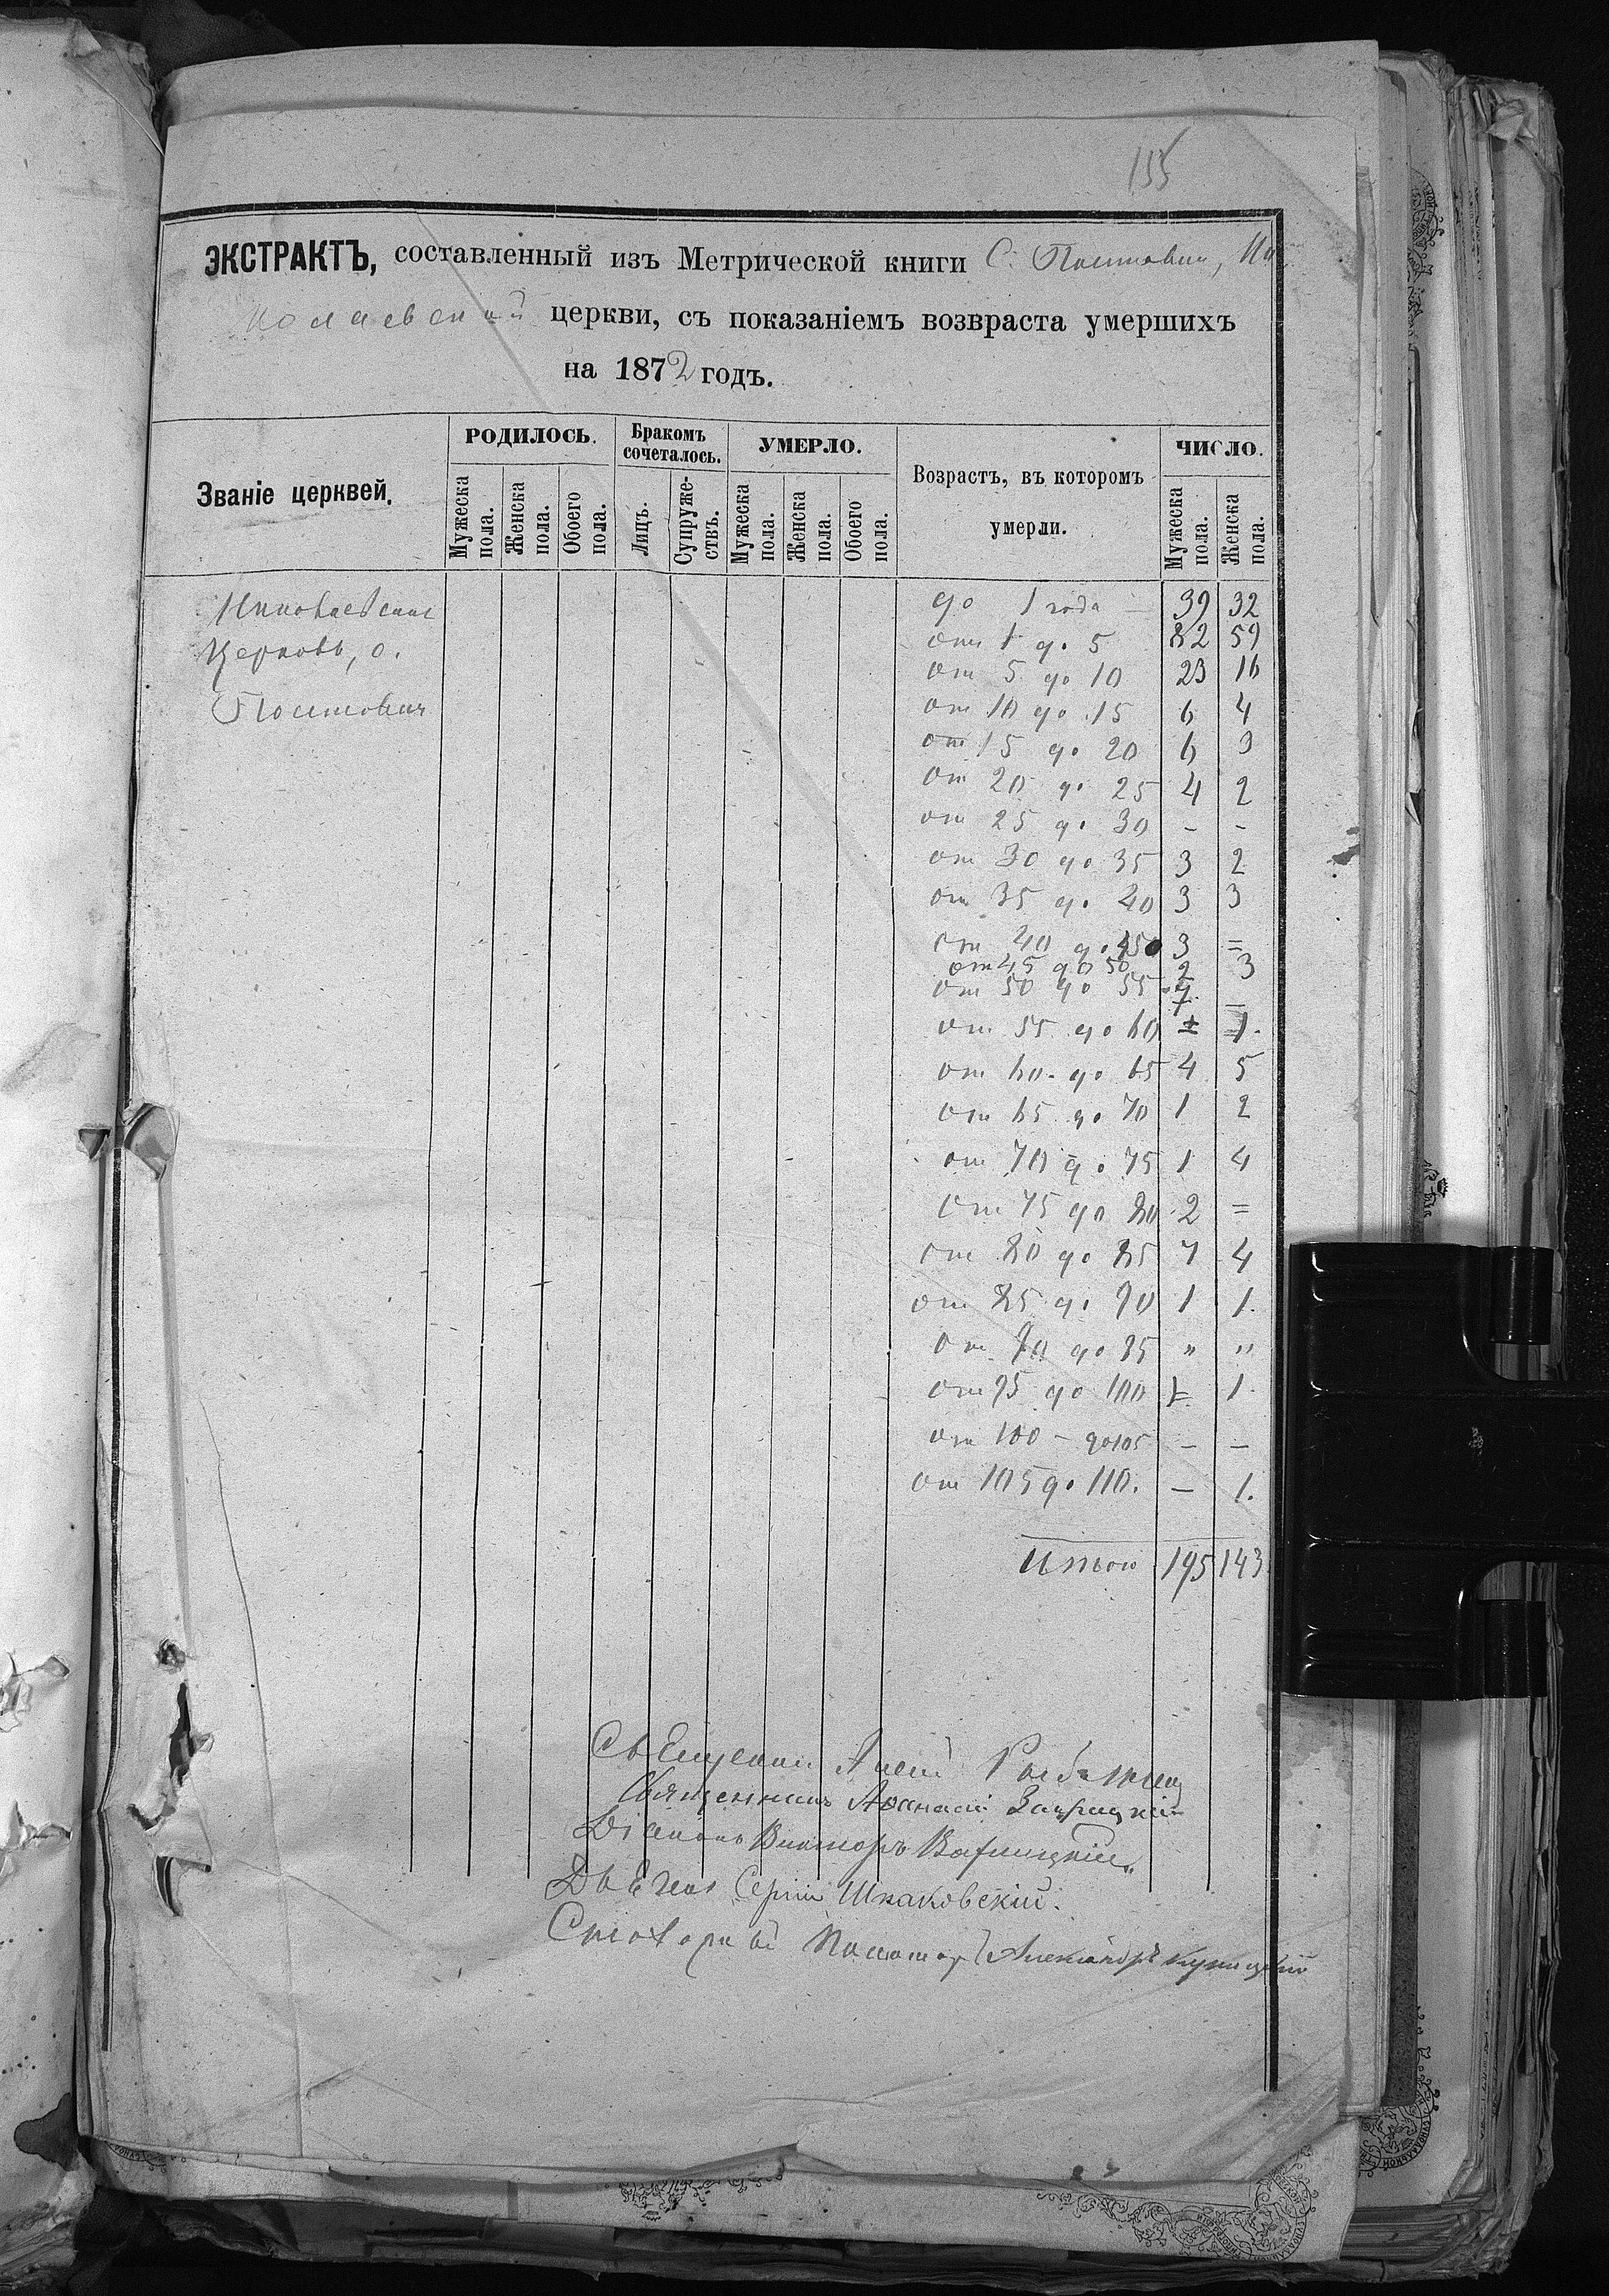 155
ЭКСТРАКТЪ, составленный изъ Метрической книги С. Понтовки, Ни
колаевской церкви, съ показаніемъ возвраста умершихъ
на 1872 годъ.
Званіе церквей.
РОДИЛОСЬ.
Бракомъ сочеталось.
УМЕРЛО.
Возрастъ, въ которомъ умерли.
ЧИСЛО.
Мужеска пола.
Женска пола.
Обоего пола.
Лицъ.
Супружествъ.
Мужеска пола.
Женска пола.
Обоего пола.
Мужеска пола.
Женска пола.
Николаевская
Церковь, с.
до 1 года 39 32
от 1 до 5 82 59
от 5 до 10 23 16
от 10 до 15 6 4
от 15 до 20 6 3
от 20 до 25 4 2
от 25 до 30 - -
от 30 до 35 3 2
от 35 до 40 3 3
от 40 до 3 =
от 45 до 50 2 3
от 50 до 55
от 55 до 60 1.
от 60 до 65 4 5
от 65 до 70 1 2
от 70 до 75 1 4
от 75 до 80 2 =
от 80 до 85 7 4
от 85 до 90 1 1.
от 90 до 95 " "
от 95 до 100 1.
от 100 - до 105 - -
от 105 до 110. - 1.
Итого 195 143
Священник
Священникъ Аѳанасій
Діаконъ Викторъ
Сергій Шпаковскій.
Александръ